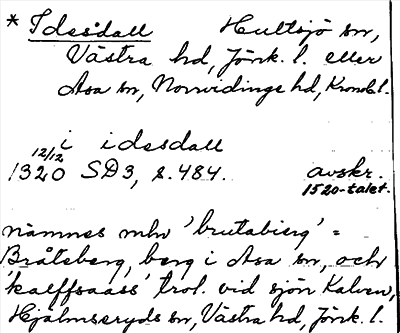 * Idesdall Hultsjö sn,
Västra hd, Jönk. l. eller
Asa sn, Norrvidinge hd, Kronob l.
i idesdall
12/12
1320 SD3, s. 484. avskr.
1520-talet.
nämnes mhv 'brutabierg' =
Bråteberg, berg i Asa sn, och
'kalffsaass' trol. vid sjön Kalven,
Hjälmseryds sn, Västra hd, Jönk. l.